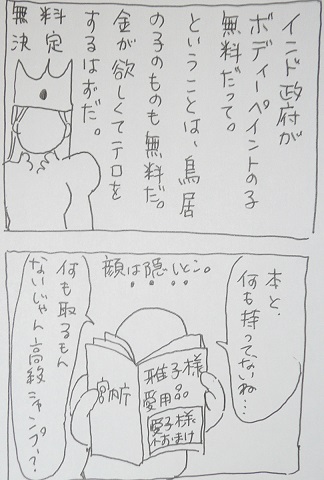 インド政府が
ボディーペイントの子
無料だって。
ということは、鳥居
の子のものも無料だ。
金が欲しくてテロを
するはずだ。
料定
無決
本と、
何も持ってないね…
顔は隠しとこ。
何も取るもん
ないじゃん
高級シャンプー?
宮内庁
雅子様
愛用品
愛子様
おまけ